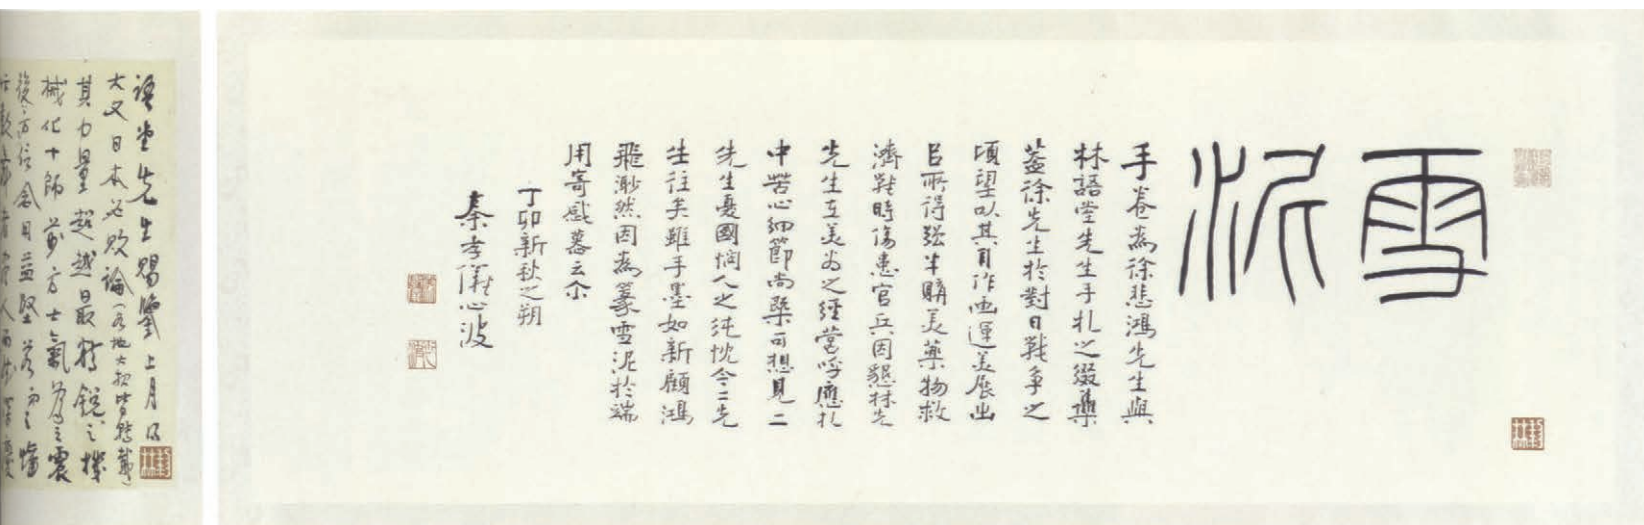 雪泥
手卷為徐悲鴻先生與
林語堂先生手札之綴雧
蓋徐先生於對日戰爭之
頃望以其自作画運美展出
㠯所得强半購美藥物救
濟戰時傷患官兵因懇林先
先生在美為之經營呼應札
中苦心細節尚槩可想見二
先生憂國憫人之純忱今二先
生往矣雖手墨如新顧鴻
飛渺然因為篆雪泥於端
用寄感慕云尒
丁卯新秋之朔
秦孝儀心波
語堂先生賜鑒上月得
大文日本必敗論(各地大報皆轉載)
其力量超越最精銳之機
械化十師前方士氣為之震
後方信念日益堅